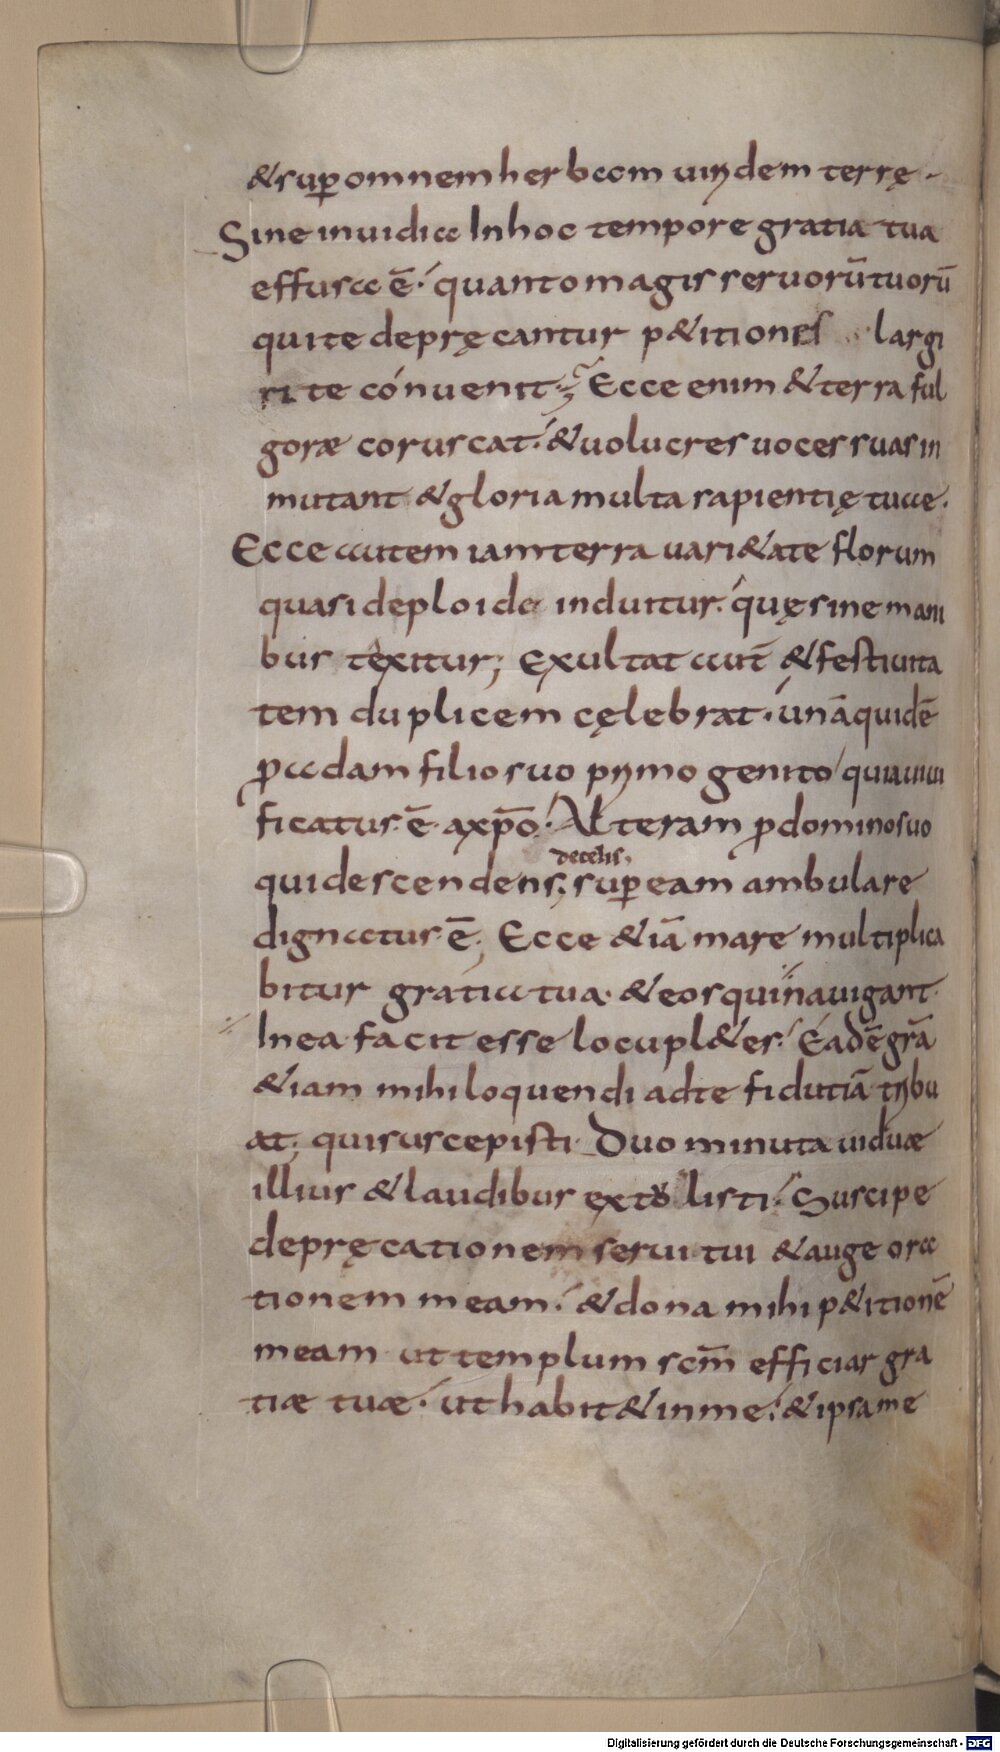 &sup̄ omnem herbam uiridem terrę.
Sine inuidia In hoc tempore gratia tua
effusa ē. quanto magis seruorū tuorū
qui te depręcantur p&itiones largi
ri te conuenit; Ecce enim & terra ful
goræ coruscat. & uolucres uoces suas in
mutant & gloria multa sapientię tuae.
Ecce autem iam terra uari&ate florum
quasi deploide induitur. quę sine mani
bus texitur; Exultat aut̄ & festiuita
tem duplicem cęlebrat. unā quidē
ꝓ adam filio suo primo genito quia uiui
ficatus ē a xp̄o. Alteram ꝓ dominosuo
decelis,
qui descendens; sup̄ eam ambulare
dignatur ē; Ecce &iā mare multiplica
bitur gratia tua. & eos qui nauigant
In ea facit esse locupl&es. Eadē gr̄a
&iam mihi loquendi ad te fidutiā tribu
at; qui suscepisti Duo minuta uiduæ
illius & laudibus extolisti. Suscipe
depręcationem serui tui & auge ora
tionem meam. & dona mihi p&itionē
meam ut templum scm̄ efficiar gra
tiæ tuæ. ut habit& in me. & ipsa me
Digitalisierung gefördert durch die Deutsche Forschungsgemeinschaft - DFG